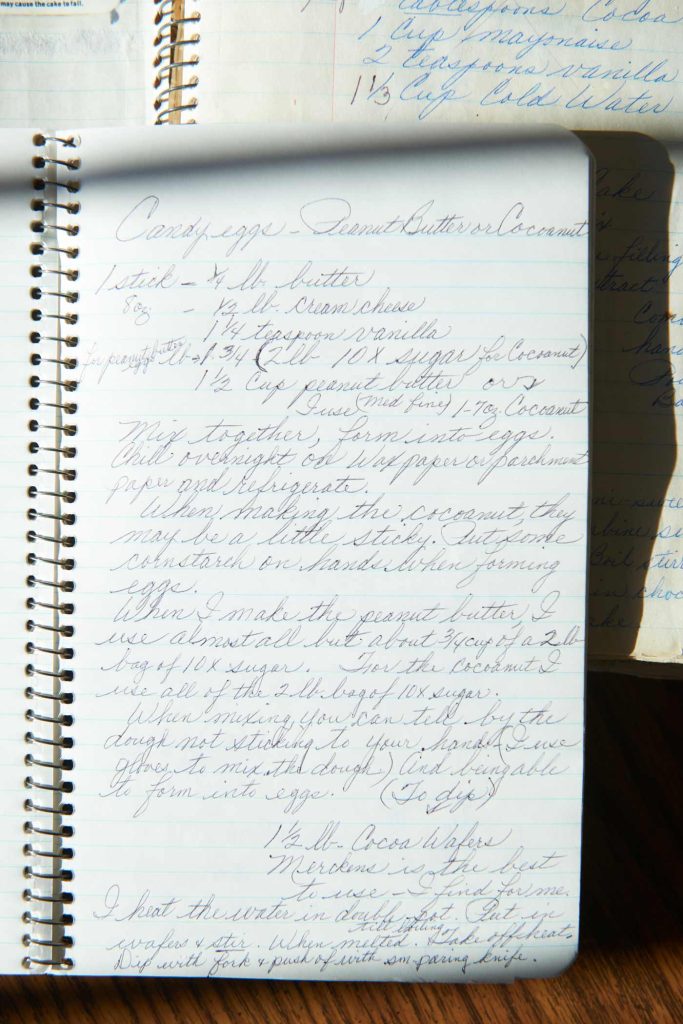 may cause the cake to fall.
tablespoons Cocoa
1 Cup mayonaise
2 teaspoons vanilla
1 1/3 Cup Cold Water
Candy eggs - Peanut Butter or Cocoanut
1 stick - 1/4 lb. butter
8 oz - 1/2 lb. cream cheese
1 1/4 teaspoon vanilla
for peanut butter eggs lb → 1 3/4 (2 lb 10x sugar for Cocoanut)
1 1/2 Cup peanut butter or
I use (med fine) 1-7oz. Cocoanut
Mix together, form into eggs.
Chill overnight on Wax paper or parchment
paper and refrigerate.
When making the cocoanut, they
may be a little sticky. Put some
cornstarch on hands when forming
eggs.
When I make the peanut butter, I
use almost all but about 3/4 cup of a 2 lb
bag of 10x sugar. For the cocoanut I
use all of the 2 lb. bag of 10x sugar.
When mixing, you can tell by the
dough not sticking to your hands (I use
gloves to mix the dough) And being able
to form into eggs. (To dip)
1 1/2 lb - Cocoa Wafers
Merckens is the best
to use - I find for me.
I heat the water in double pot till boiling. Put in
wafers & stir. When melted. Take off heat.
Dip with fork & push of with sm paring knife.
Cake
filling